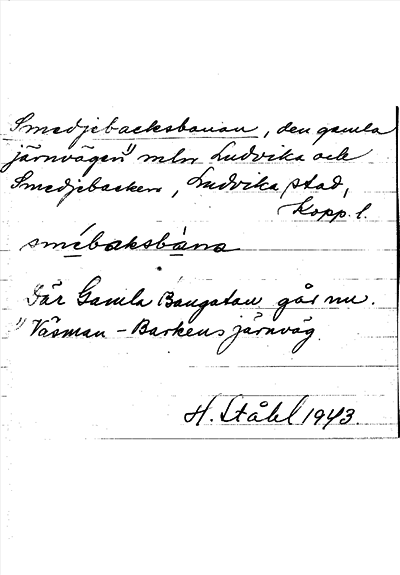 Smedjebacksbanan, den gamla
järnvägen¹⁾ mln Ludvika och
Smedjebacken, Ludvika stad,
Kopp. l.
smébaksbána
Där Gamla Bangatan går nu.
¹⁾ Väsman - Barkens järnväg
H. Ståhl 1943.